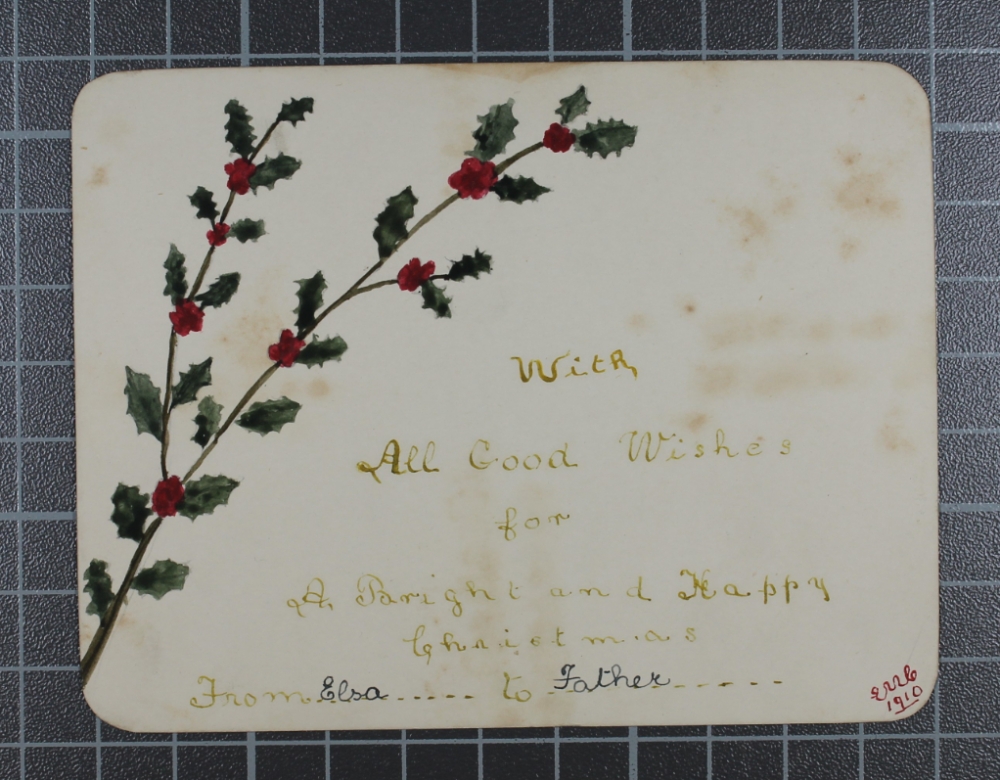 With
All Good Wishes
for
A Bright and Happy
Christmas
From Elsa ..... to Father ------
1910